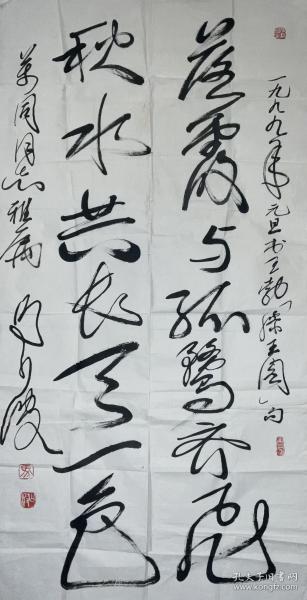 一九九九年元旦书王勃「滕王阁」句
落霞与孤鹜齐飛
秋水共长天一色
萬同同志雅属
孔夫子旧书网
www.kongfz.com